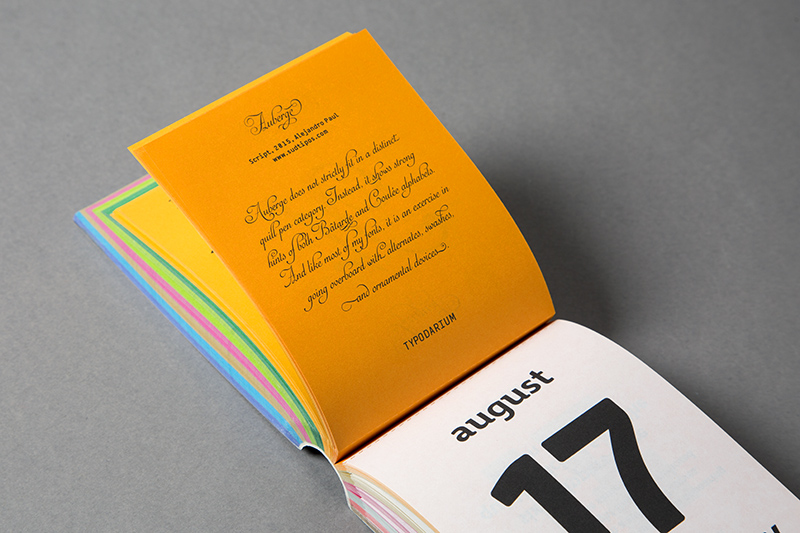 Auberge
Script, 2015, Alejandro Paul
www.sudtipos.com
Auberge does not strictly fit in a distinct
quill pen category. Instead, it shows strong
hints of both Bâtarde and Coulée alphabets.
And like most of my fonts, it is an exercise in
going overboard with alternates, swashes,
and ornamental devices.
TYPODARIUM
august
17